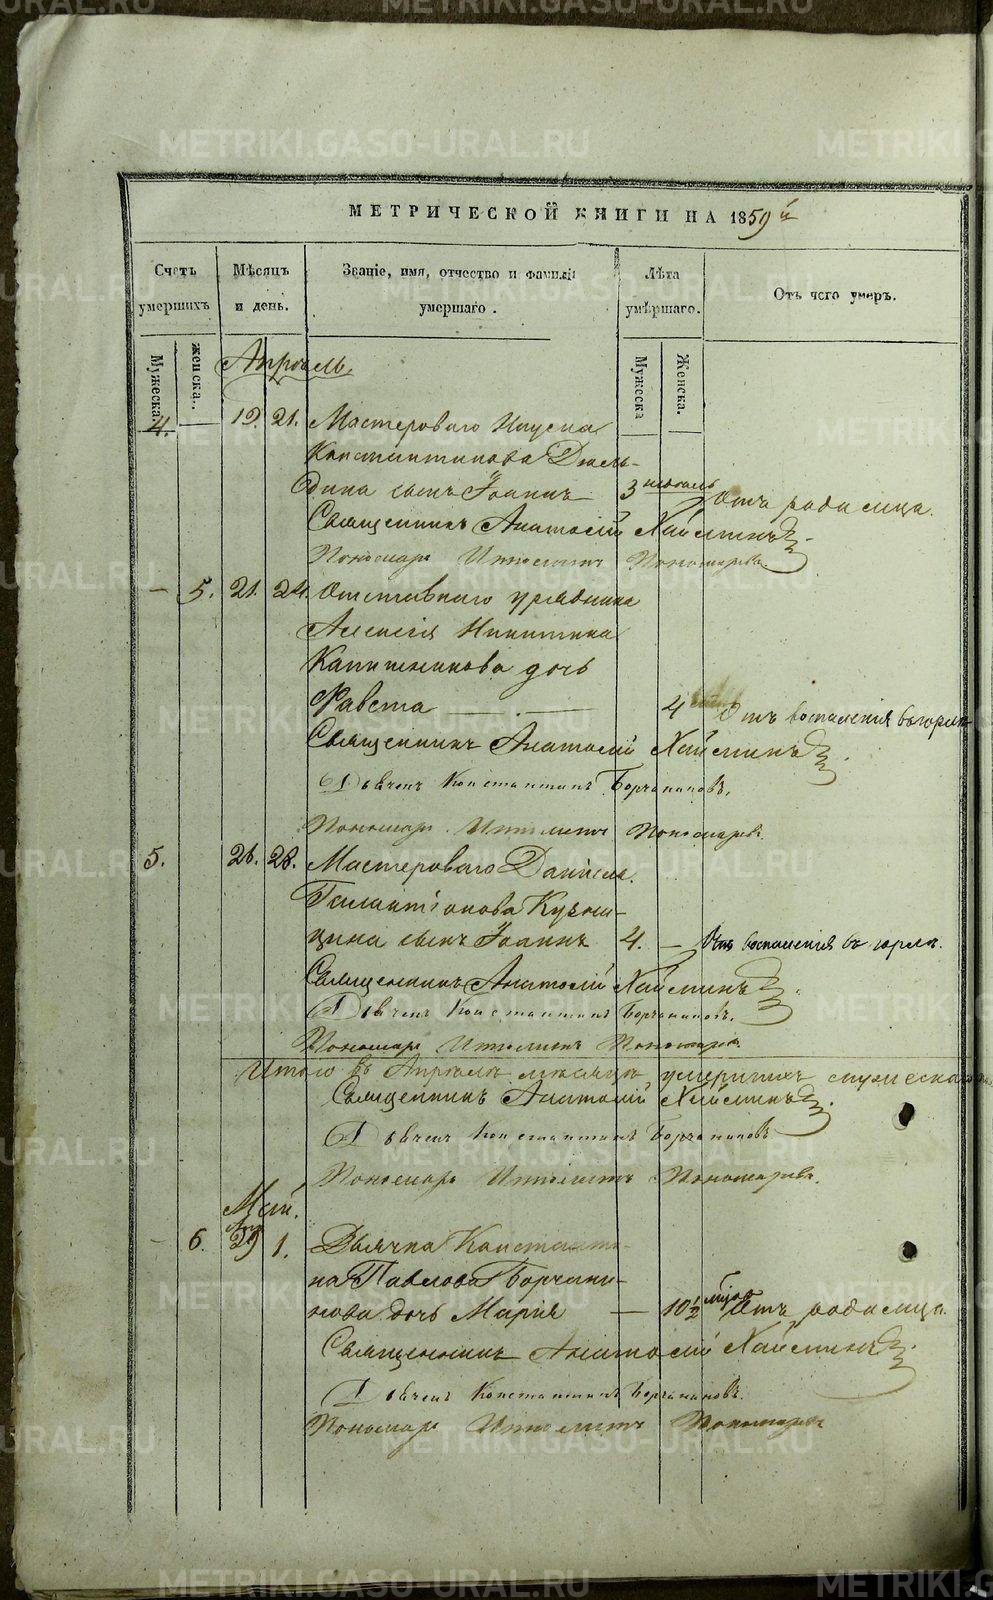 МЕТРИЧЕСКОЙ КНИГИ НА 1859й
Счетъ умершихъ
Мѣсяцъ и день.
Званіе, имя, отчество и фамилія умершаго.
Лѣта умершаго.
Отъ чего умеръ.
Мужеска.
женска.
Мужеска
Женска.
Апрѣль.
4. — 19. 21. Мастероваго
Константинова
дина сынъ Іоаннъ 3 недѣль Отъ родимца.
Священникъ Анатолій
Пономарь Ипполитъ Пономаревъ
— 5. 21. 24. Отставнаго урядника
Алексія Никитина
дочь
Фавста — 4 Отъ воспаленія въ горлѣ
Священникъ Анатолій
Дьячекъ Константинъ Борчаниновъ.
Пономарь Ипполитъ Пономаревъ.
5. 26. 28. Мастероваго Даніила
Галактіонова Кузни-
цина сынъ Іоаннъ 4. — Отъ воспаленія въ горлѣ.
Священникъ Анатолій
Дьячекъ Константинъ Борчаниновъ.
Пономарь Ипполитъ Пономаревъ.
Итого въ Апрѣлѣ мѣсяцѣ умершихъ мужеска
Священникъ Анатолій
Дьячекъ Константинъ Борчаниновъ
Пономарь Ипполитъ Пономаревъ.
Май.
Апр.
— 6. 29 1. Дьячка Константи-
на Павлова Борчани-
нова дочь Марія — 10 1/2 Отъ родимца.
Священникъ Анатолій
Дьячекъ Константинъ Борчаниновъ.
Пономарь Ипполитъ Пономаревъ
METRIKI.GASO-URAL.RU